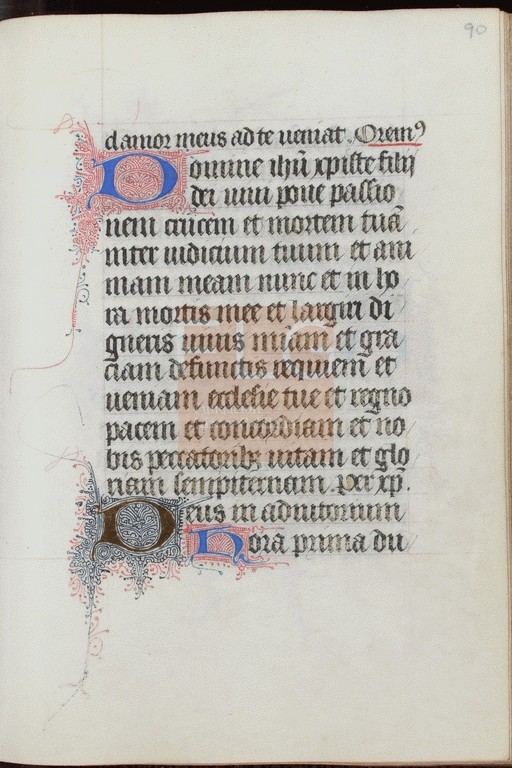 90
d amor meus ad te ueniat. Orem⁹
Domine ihū xpiste filij
dei uiui pone passio
nem crucem et mortem tuā
inter iudicium tuum et ani
mam meam nunc et in ho
ra mortis mee et largiri di
gneris uiuis miām et gra
ciam defunctis requiem et
ueniam ecclesie tue et regno
pacem et concordiam et no
bis peccatoribꝫ uitam et glo
riam sempiternam. Per xp̄.
Deus in adiutorium
Hora prima du
FLG